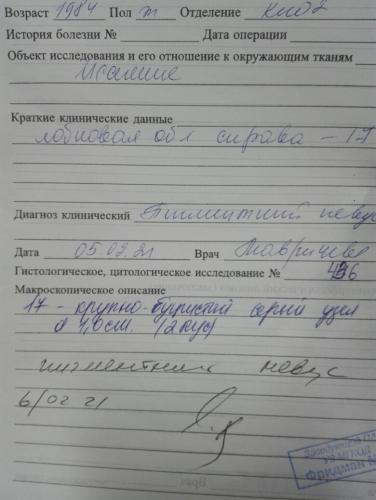 Возраст 1984 Пол м Отделение
История болезни № Дата операции
Объект исследования и его отношение к окружающим тканям
Краткие клинические данные
лобновая обл справа - 17
Диагноз клинический Пигментный невус
Дата 05 02.21 Врач
Гистологическое, цитологическое исследование №
Макроскопическое описание
17 - крупно-бугристый серый узел
d 1,0см. (2кус)
пигментник невус
6/02 21
Фридман
Врач